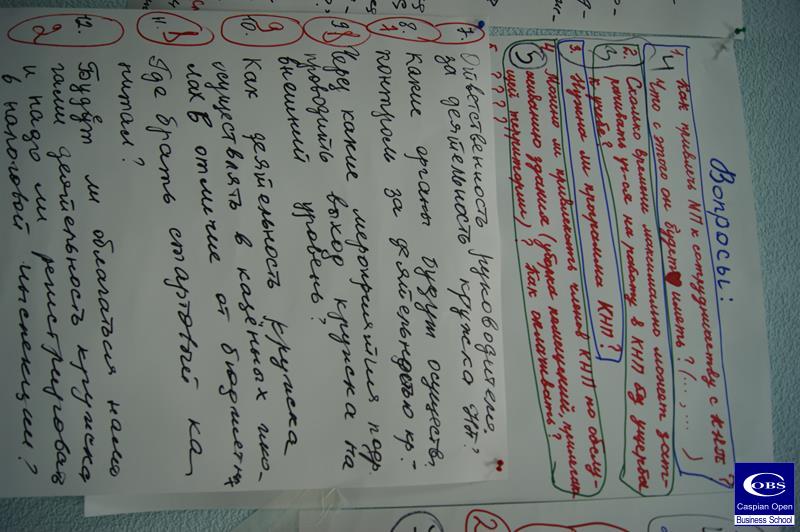 Вопросы:
1. Как привлечь МП к сотрудничеству с КНП?
4 Что с этого он будет иметь? (..., ... )
2. Сколько времени максимально может затрачивать уч-ся на работу в КНП без ущерба
3 к учебе?
3. Нужна ли программа КНП?
4. Можно ли привлекать членов КНП по обслу-
5 живанию здания (уборка помещений, прилегаю-
щей территории)? Как оплачивать?
? ? ? ?
7. Ответственность руководителя
за деятельность кружка ?
8. Какие органы будут осуществ.
7 контроль за деятельностью кр.-
9. Через какие мероприятия подр.
8 проводить выход кружка на
внешний уровень?
10. Как деятельность кружка
9 осуществлять в казённых шко-
лах в отличие от бюджетных
11. Где брать стартовый ка
8 питал?
12. Будут ли облагаться нало
2 гами деятельность кружка
и надо ли регистрироваться
в налоговой инспекции?
2
COBS
Caspian Open
Business School